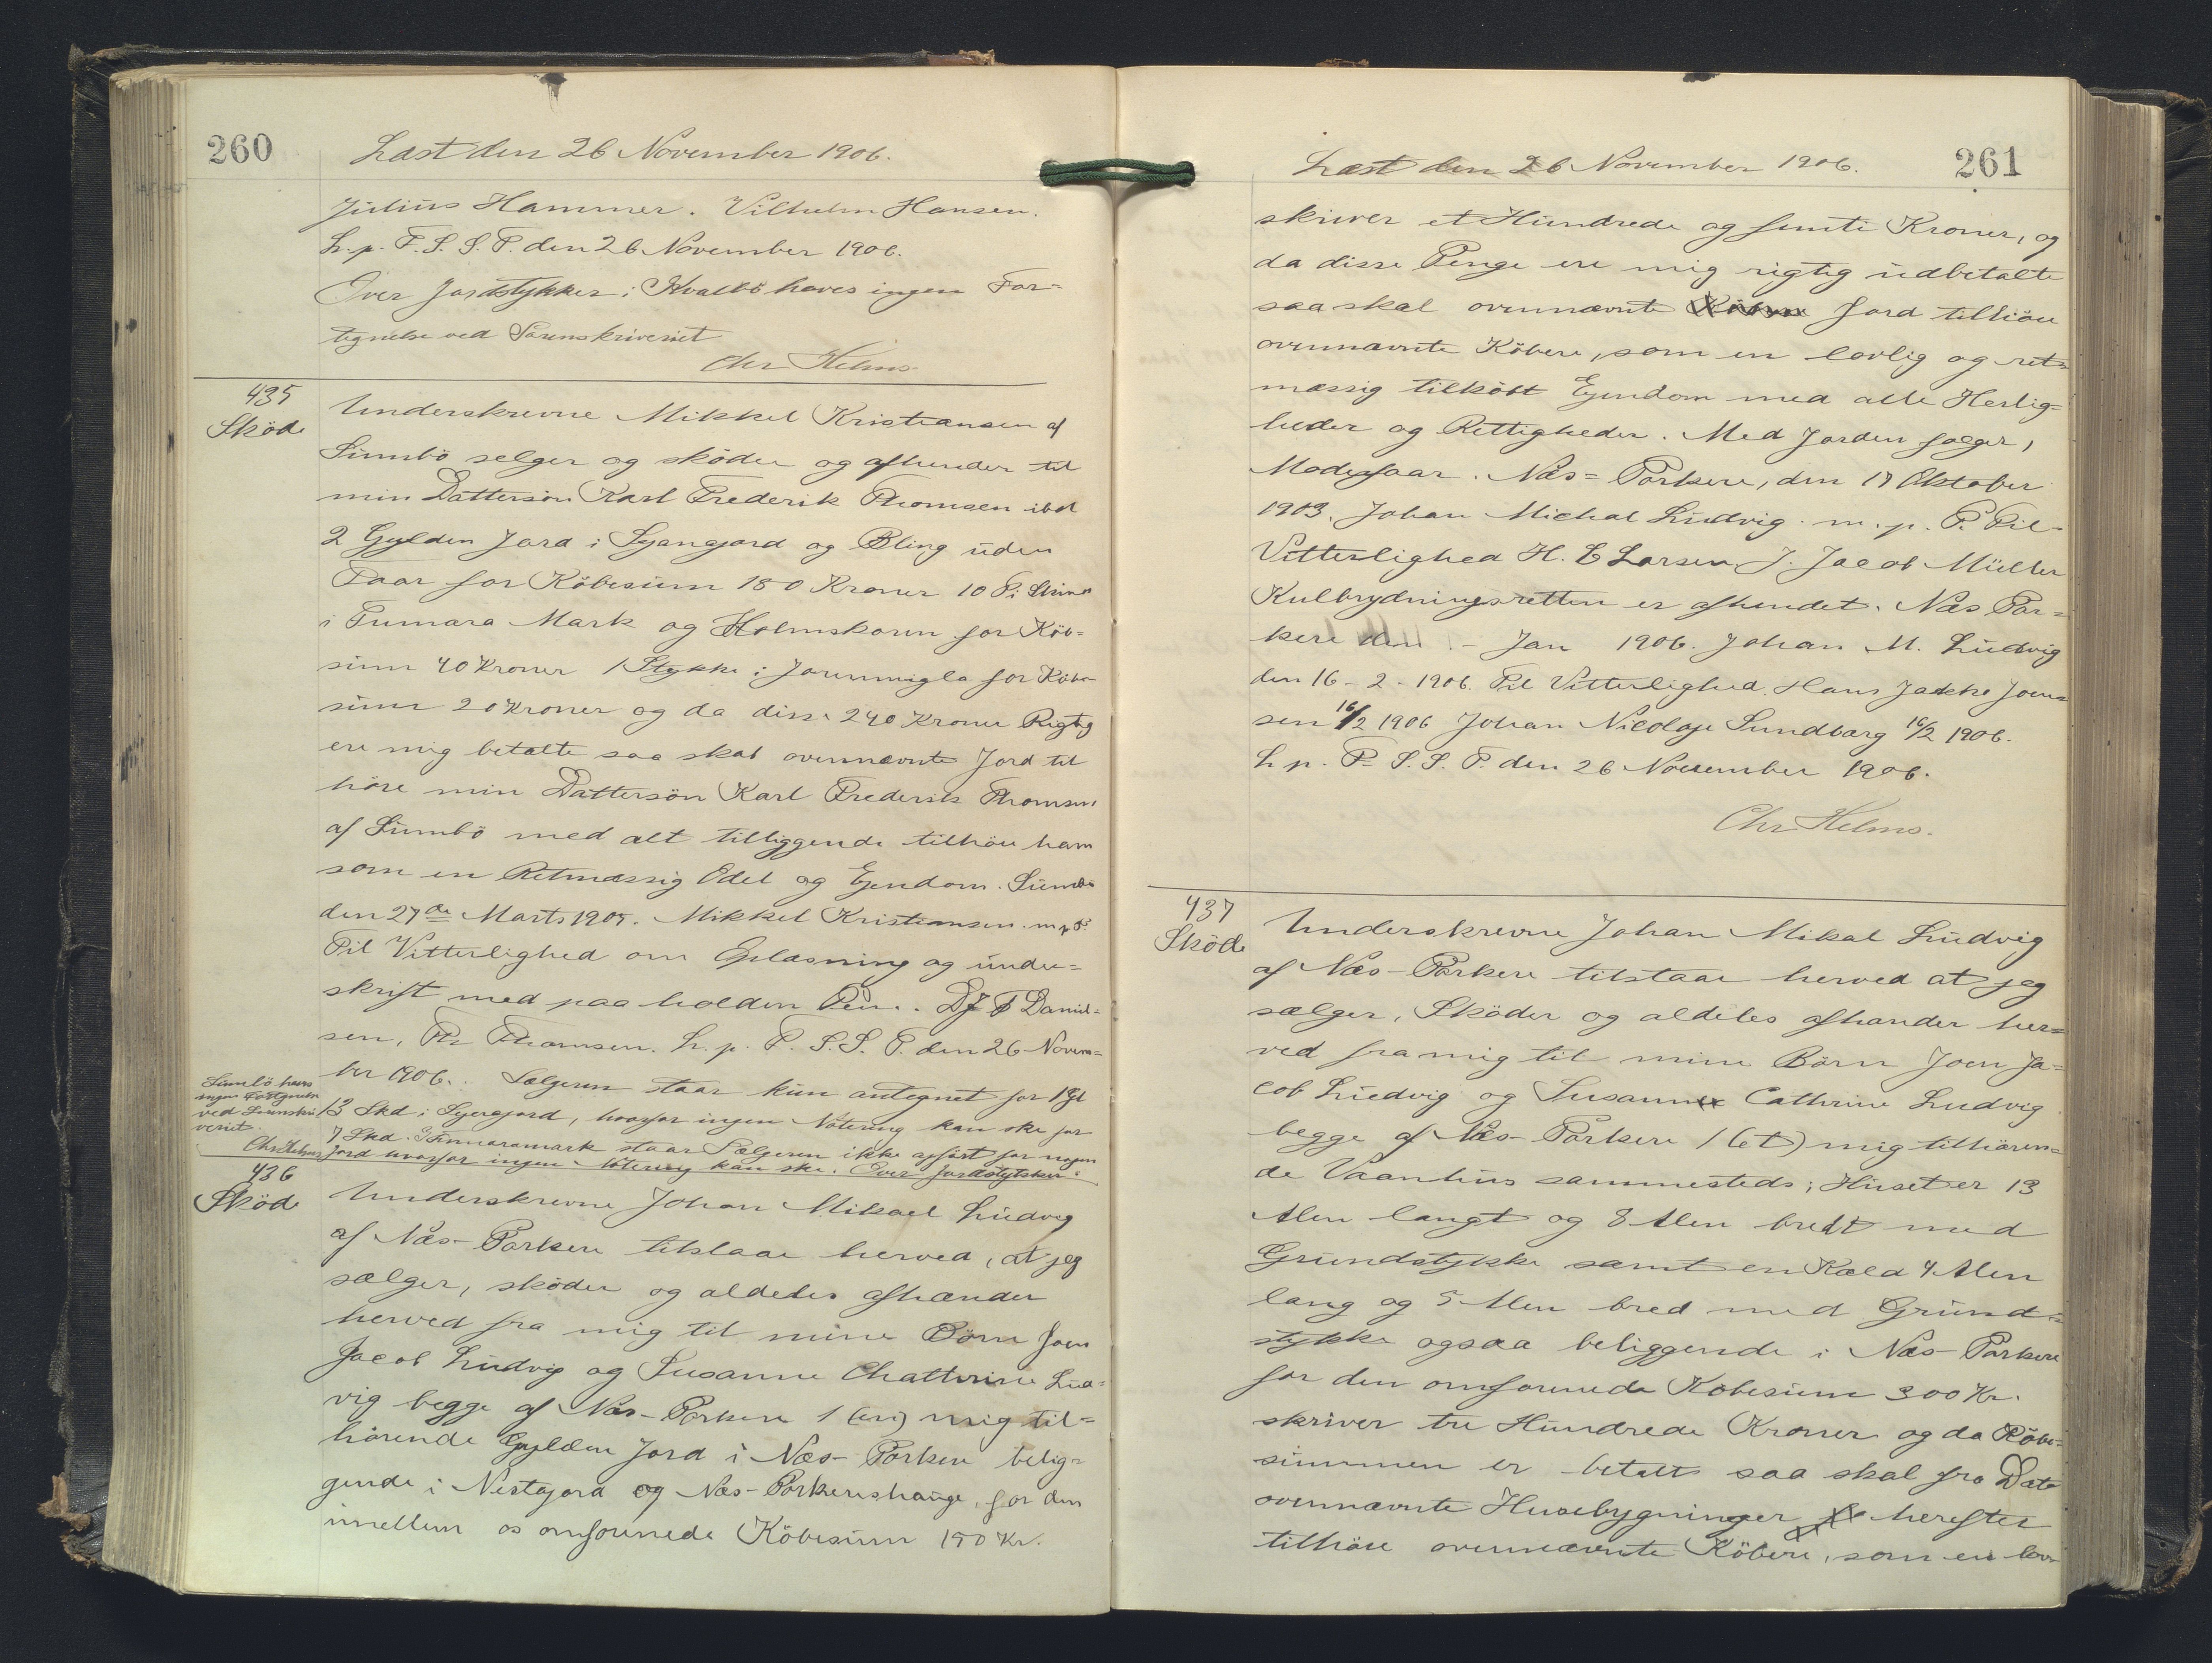 260
Læst den 26 November 1906.
Julius Hammer. Vilhelm Hansen.
L. p. F. S. S. T. den 26 November 1906.
Over Jordstykker i Kvalbö haves ingen For=
tegnelse ved Sorenskriveriet
Chr Helms
435
Sköde
Underskrevne Mikkel Kristiansen af
Sumbö selger og sköder og afhender til
min Dattersön Karl Frederik Thomsen ibd
2 Gylden Jord i Syangjord og Bling uden
Faar for Köbesum 180 Kroner 10
i Tumara Mark og Holmskoren for Köb=
sum 40 Kroner 1 Stykke i for Köbe
sum 20 Kroner og da disse 240 Kroner Rigtig
ere mig betalte saa skal ovennævnte Jord til
höre min Dattersön Karl Frederik Thomsen
af Sumbö med alt tilliggende tilhöre ham
som en Retmæssig Odel og Ejendom. Sumbö
den 27de Marts 1905. Mikkel Kristiansen. m. p. P.
Til Vitterlighed om Oplæsning og under=
skrift med paa holden Pen. D J P Daniel=
sen, Thomsen. L. p. F. S. S. T. den 26 Novem=
ber 1906. Sælgeren staar kun antegnet for 1 Gl
13 Skd i Syeregjord, hvorfor ingen Notering kan ske for
7 Skd. I Tumaramark staar Sælgeren ikke opfört for nogen
Jord hvorfor ingen Notering kan ske. Over Jordstykker i
Sumbö haves
ingen Fortegnelse
ved Sorenskri
veriet.
Chr Helms
436
Sköde
Underskrevne Johan Mikael Ludvig
af Næs-Porkere tilstaar herved, at jeg
sælger, sköder og aldeles afhænder
herved fra mig til mine Börn Joen
Jacob Ludvig og Susanne Chattrine Lud=
vig begge af Næs-Porkere 1 (en) mig til=
hörende Gylden Jord i Næs-Porkere belig=
gende i Nistagjord og Næs-Porkereshauge, for den
imellem os omforenede Köbesum 150 Kr.
261
Læst den 26 November 1906.
skriver et Hundrede og femti Kroner, og
da disse Penge ere mig rigtig udbetalte
saa skal ovennævnte Jord tilhöre
ovennævnte Köbere, som en lovlig og ret=
mæssig tilköbt Ejendom med alle Herlig=
heder og Rettigheder. Med Jorden fölger,
Moderfaar. Næs=Porkere, den 17 Oktober
1903. Johan Michal Ludvig. m. p. P. Til
Vitterlighed H. E Larsen J. Jacob Müller
Kulbrydningsretten er afhendet. Næs Por=
kere den - Jan 1906. Johan M. Ludvig
den 16-2-1906. Til Vitterlighed. Hans Jakke Joen=
sen 16/2 1906 Johan Nicolaje Sundbarg 16/2 1906.
L. p. F. S. S. T. den 26 November 1906.
Chr Helms.
437
Sköde
Underskrevne Johan Mikal Ludvig
af Næs-Porkere tilstaar herved at jeg
sælger, Sköder og aldeles afhander her=
ved fra mig til mine Börn Joen Ja=
cob Ludvig og Susanne Cathrine Ludvig
begge af Næs-Porkere 1 (et) mig tilhören=
de Vaanhus sammesteds; Huset er 13
Alen langt og 8 Alen bredt med
Grundstykke samt en Kæld 7 Alen
lang og 5 Alen bred med Grund=
stykke ogsaa beliggende i Næs-Porkere
for den omforenede Köbesum 300 Kr.
skriver tre Hundrede Kroner og da Köbe=
summen er betalt saa skal fra Dato
ovennævnte Husebygninger herefter
tilhöre ovennævnte Köbere, som en lov=